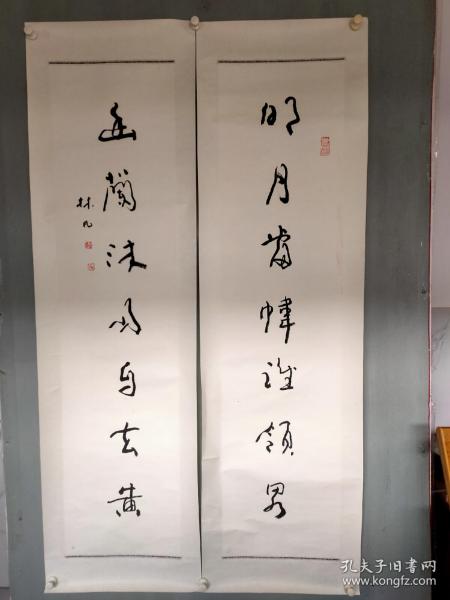 明月當幃誰領畧
幽蘭沐雨自玄黄
林凡
孔夫子旧书网
www.kongfz.com